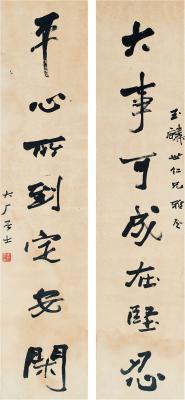 大事可成在堅忍
玉麟世仁兄雅屬
平心所到定安閑
大厂居士